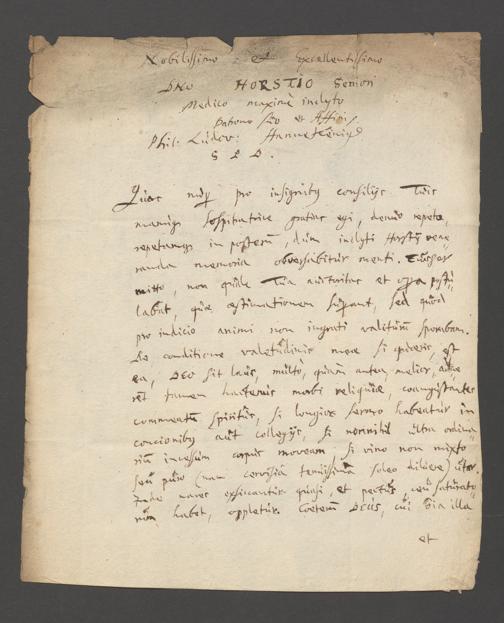 Nobilissimo et Excellentissimo
Dno HORSTIO Seniori
Medico maximè inclyto
Patrono suo et
Phil: Ludov: Hannekenius
S P D.
Quas nup pro insignibus consilijs Tuis
manuq sospitatrice gratias egi, denuo repeto,
repetamq in posterum, dum inclyti Horstij vene
randa memoria obversabitur menti.
mitto, non quale Tua autoritas et opera postu
labat, quae aestimationem superant, sed quod
pro indicio animi non ingrati valiturum sperabam.
De conditione valetudinis meae si quaeris, est
ea, DEO sit laus, multò, quàm antea, melior, adhae
rent tamen hactenus morbi reliquiae, coangustantes
commeatum spiritus, si longior sermo habeatur in
concionibus aut collegijs, si nonnihil ultra ordina
rium incessum corpus moveam, si vino non mixto
seu puro (nam cervisiâ tenuissimâ soleo diluere) utor.
Inde nares exsiccantur quasi, et pectus ceu saturatum
non habet, oppletur. Coeterum DEUS, cui bia illa
et